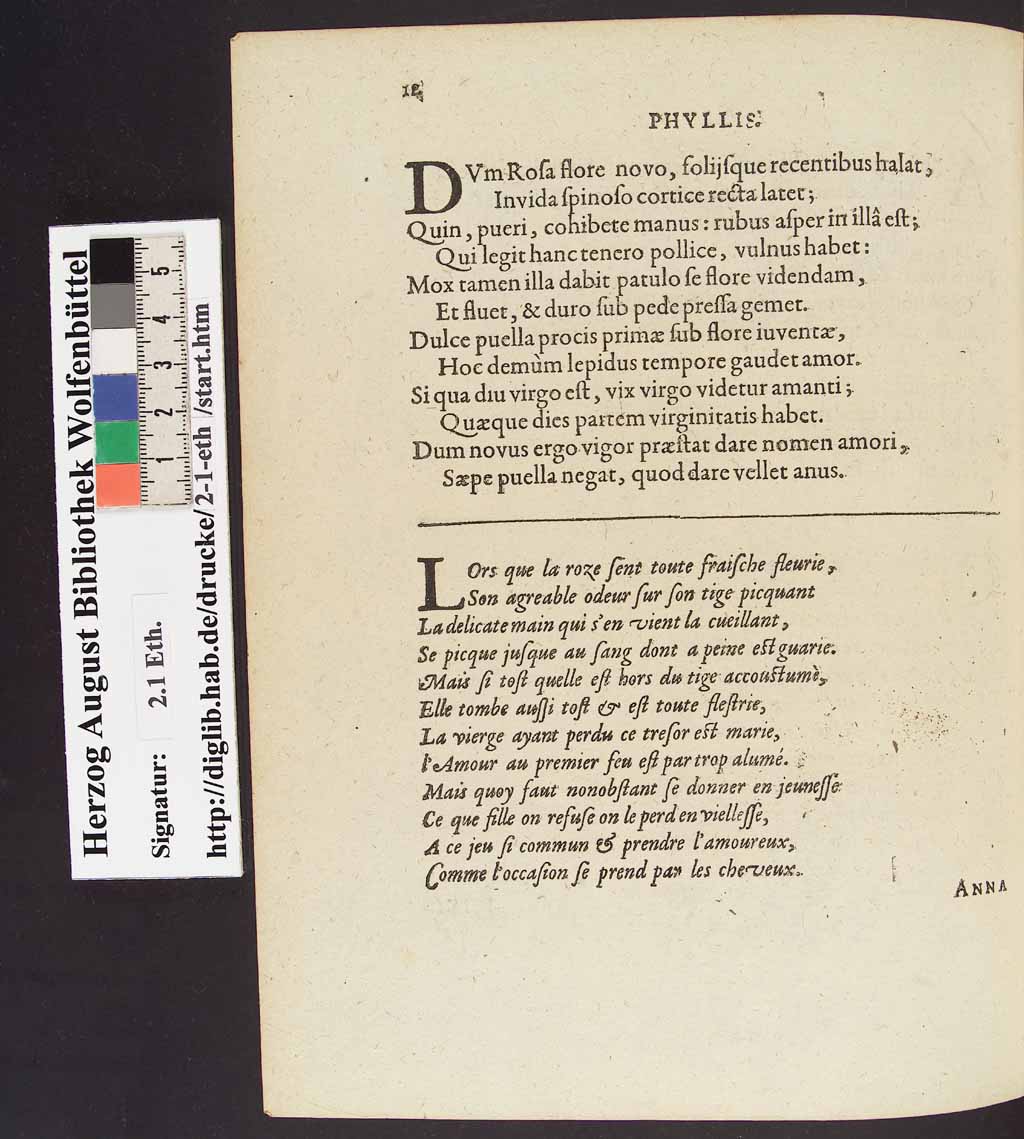 12
PHYLLIS.
DVm Roſa flore novo, folijſque recentibus halat,
Invida ſpinoſo cortice recta latet;
Quin, pueri, cohibete manus: rubus aſper in illâ eſt;
Qui legit hanc tenero pollice, vulnus habet:
Mox tamen illa dabit patulo ſe flore videndam,
Et fluet, & duro ſub pede preſſa gemet.
Dulce puella procis primæ ſub flore iuventæ,
Hoc demùm lepidus tempore gaudet amor.
Si qua diu virgo eſt, vix virgo videtur amanti;
Quæque dies partem virginitatis habet.
Dum novus ergo vigor præſtat dare nomen amori,
Sæpe puella negat, quod dare vellet anus.
LOrs que la roze ſent toute fraiſche fleurie,
Son agreable odeur ſur ſon tige picquant
La delicate main qui s'en vient la cueillant,
Se picque juſque au ſang dont a peine eſt guarie.
Mais ſi toſt quelle eſt hors du tige accouſtumè,
Elle tombe auſſi toſt & eſt toute fleſtrie,
La vierge ayant perdu ce treſor eſt marie,
l'Amour au premier feu eſt par trop alumé.
Mais quoy faut nonobſtant ſe donner en jeuneſſe
Ce que fille on refuſe on le perd en vielleſſe,
A ce jeu ſi commun & prendre l'amoureux,
Comme l'occaſion ſe prend par les cheveux.
ANNA
Herzog August Bibliothek Wolfenbüttel
Signatur: 2.1 Eth.
http://diglib.hab.de/drucke/2-1-eth /start.htm
1 2 3 4 5